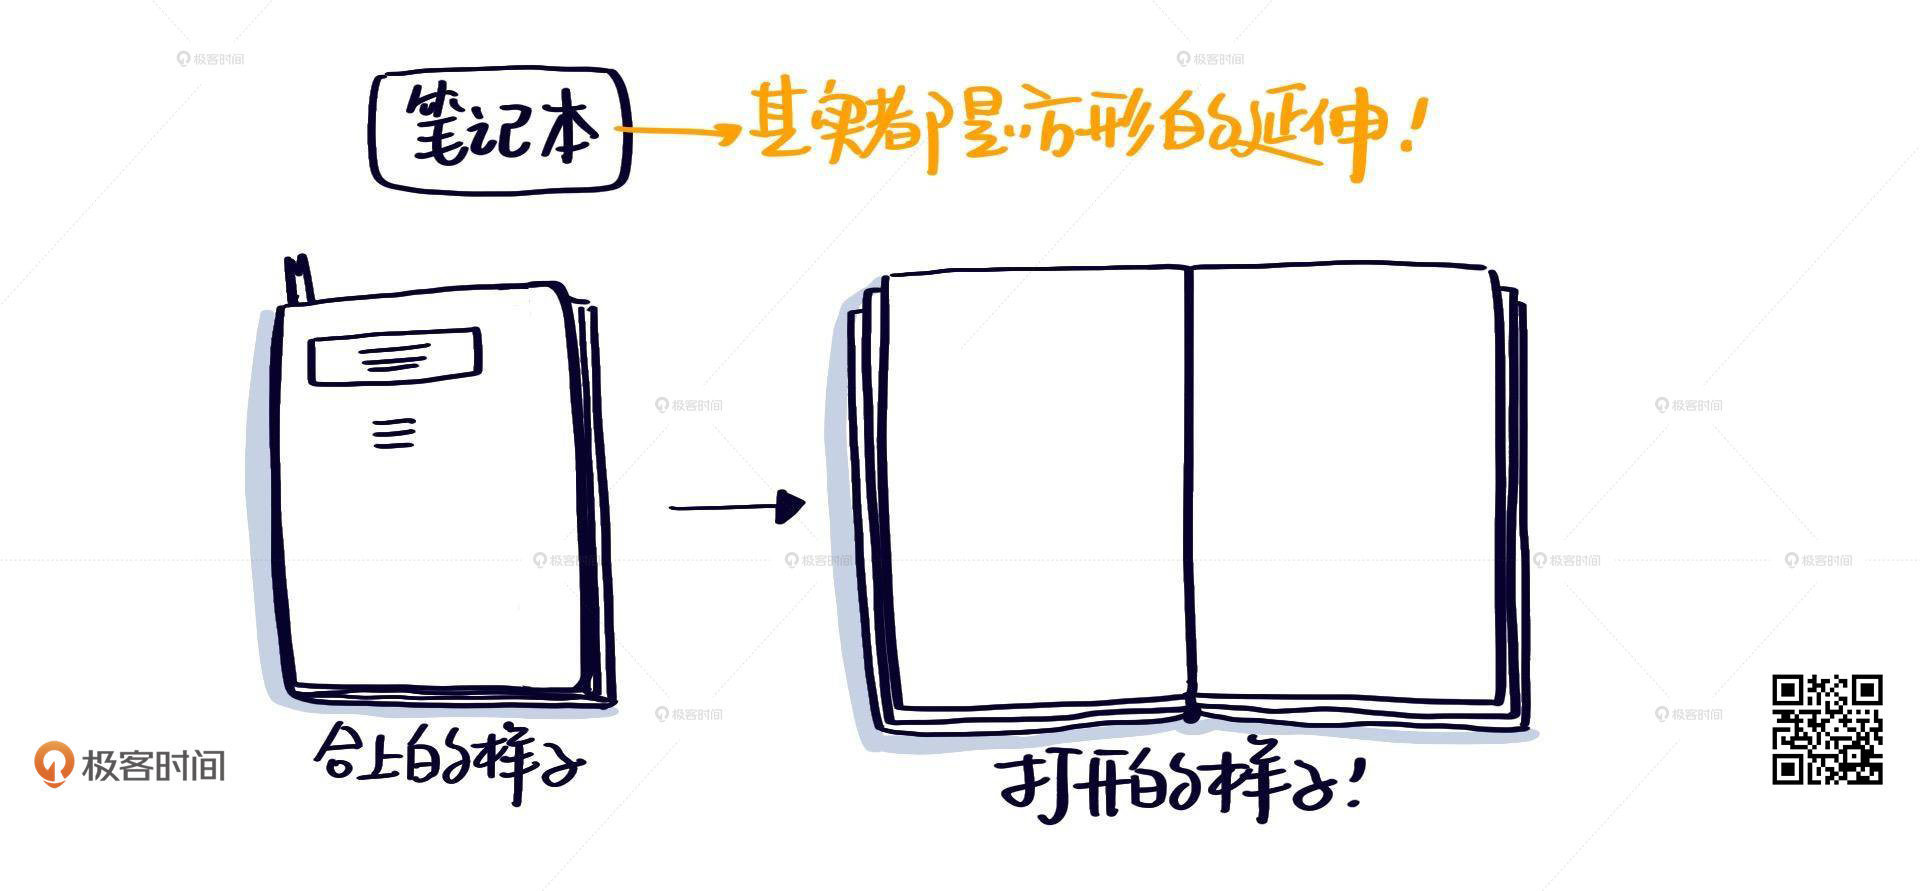 笔记本
其实都是方形的延伸！
合上的样子
打开的样子！
极客时间
极客时间
极客时间
极客时间
极客时间
极客时间
极客时间
极客时间
极客时间
极客时间
极客时间